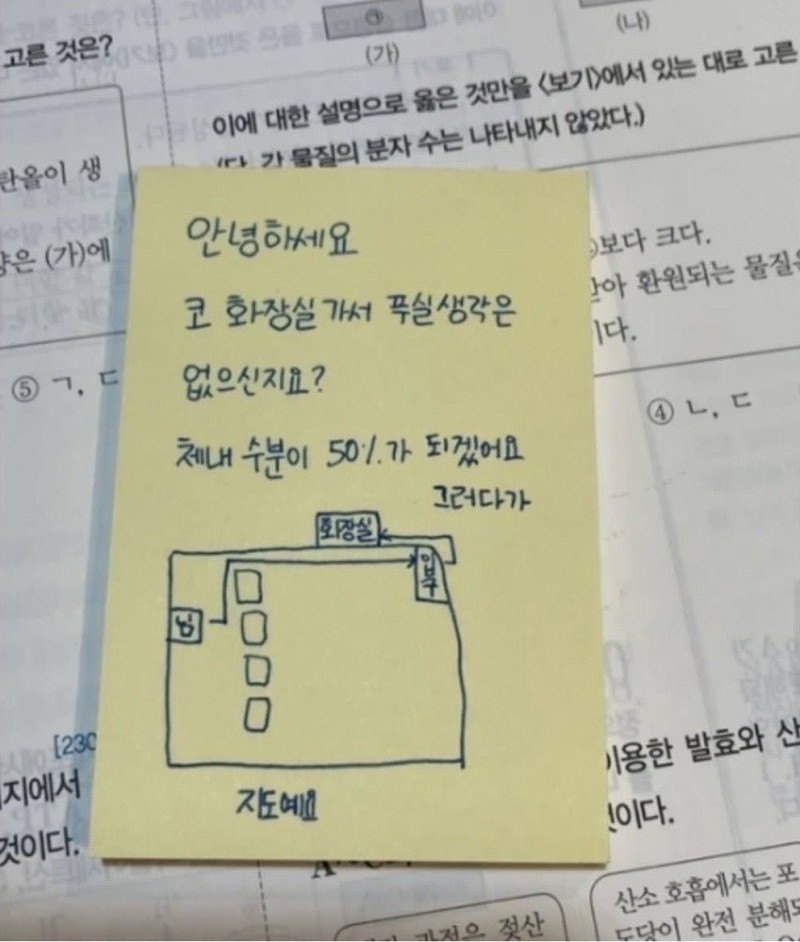 고른 것은?
(가)
(나)
이에 대한 설명으로 옳은 것만을 <보기>에서 있는 대로 고른
(단, 각 물질의 분자 수는 나타내지 않았다.)
탄올이 생
양은 (가)에
⑤ ㄱ, ㄷ
보다 크다.
받아 환원되는 물질은
이다.
④ ㄴ, ㄷ
안녕하세요
코 화장실가서 푸실생각은
없으신지요?
체내 수분이 50%가 되겠어요
그러다가
화장실
입구
님
지도예요
[230
지에서
것이다.
이용한 발효와 산
것이다.
과정은 젖산
산소 호흡에서는 포
도당이 완전 분해되